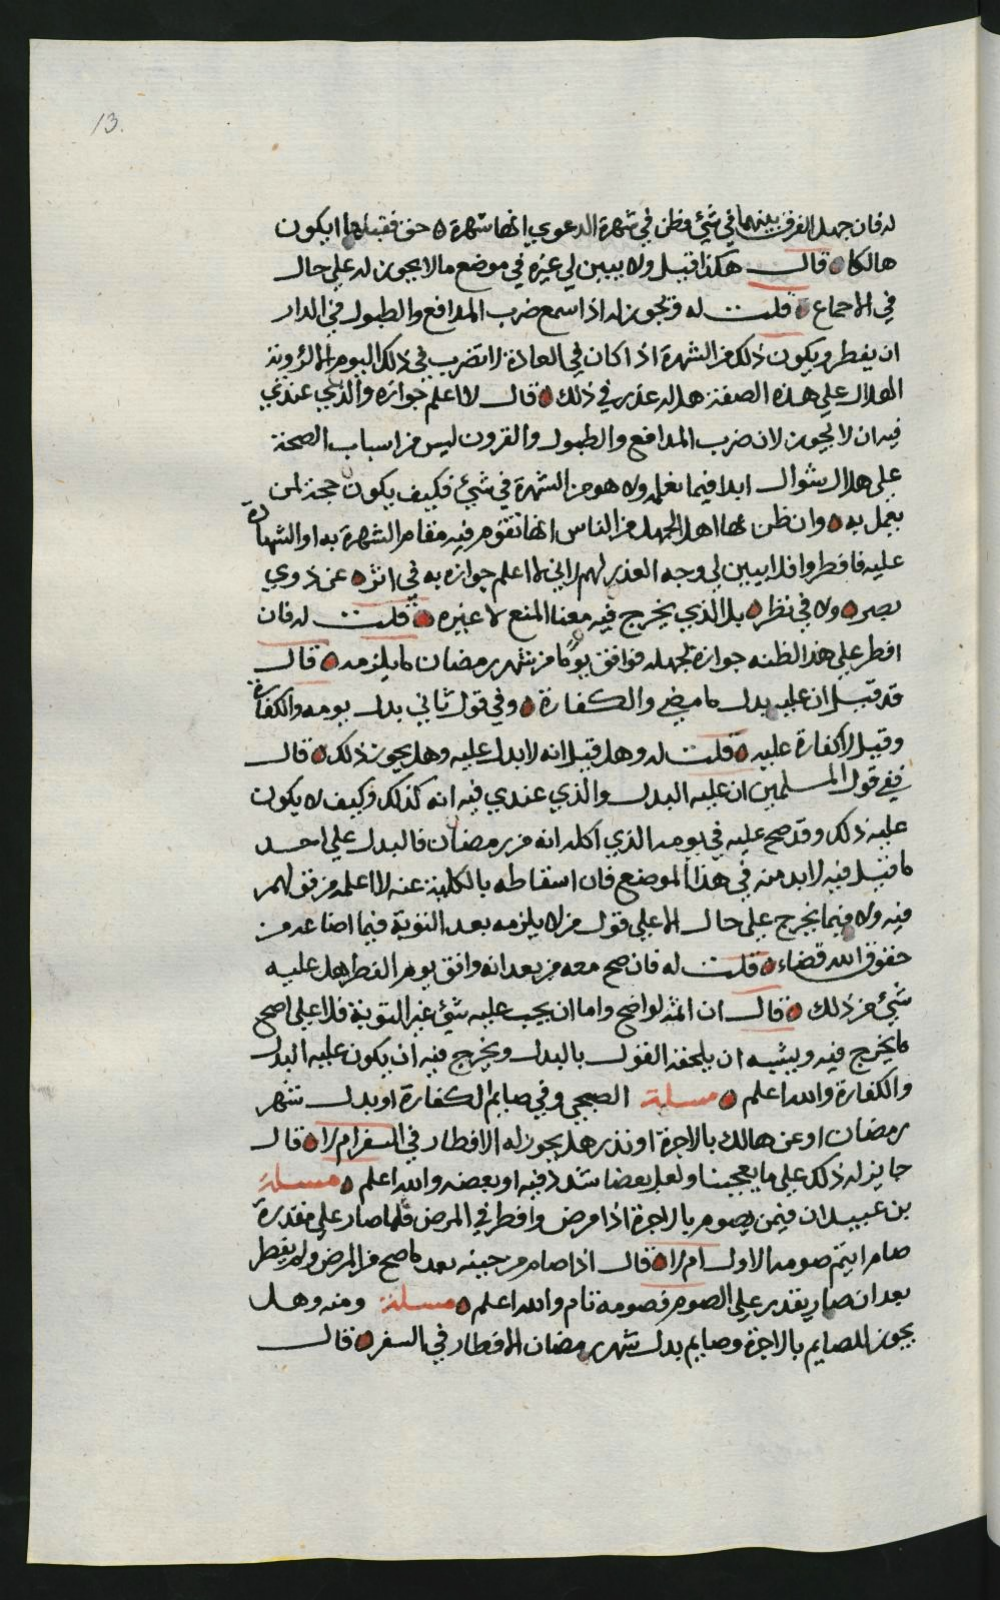 13.
له فان جهل الفرق بينهما في شئ وظن في شهرة الدعوي انها شهرة حق فقبلها ايكون
هالكا قال هكذا قيل ولا يبين لي غيره في موضع ما لا يجوز له علي حال
في الاجماع قلت له ويجوز له اذا سمع ضرب المدافع والطبول في الدار
ان يفطر ويكون ذلك من الشهرة اذا كان في العادة لا تضرب في ذلك اليوم الا لرؤية
الهلال علي هذه الصفة هل له عذر في ذلك قال لا اعلم جوازه والذي عندي
فيه ان لا يجوز لان ضرب المدافع والطبول والقرون ليس من اسباب الصحة
علي هلال شوال ابدا فيما نعلم ولا هو من الشهرة في شئ فكيف يكون حجة لمن
يعمل به وان ظن بها اهل الجهل من الناس انها تقوم فيه مقام الشهرة به او الشهادة
عليه فافطروا فلا يبين لي وجه العذر لهم لاني لا اعلم جوازه به في اثر عن ذوي
بصر ولا في نظر بل الذي يخرج فيه معنا المنع لا غيره قلت له فان
افطر علي هذا لظنه جوازه لجهله فوافق يوما من شهر رمضان ما يلزمه قال
قد قيل ان عليه بدل ما مضي والكفارة وفي قول ثاني بدل يومه والكفارة
وقيل لا كفارة عليه قلت له وهل قيل انه لا بدل عليه وهل يجوز ذلك قال
ففي قول المسلمين ان عليه البدل والذي عندي فيه انه كذلك وكيف لا يكون
عليه ذلك وقد صح عليه في يومه الذي اكله انه من رمضان فالبدل علي احد
ما قيل فيه لا بد منه في هذا الموضع فان اسقاطه بالكلية عنه لا اعلمه من قولهم
فيه ولا فيما يخرج علي حال الا علي قول من لا يلزمه بعد التوبة فيما اضاعه من
حقوق الله قضاء قلت له فان صح معه من بعد انه وافق يوم الفطر هل عليه
شئ من ذلك قال ان اثمه لواضح واما ان يجب عليه شئ غير التوبة فلا علي اصح
ما يخرج فيه ويشبه ان يلحقه القول بالبدل ويخرج فيه ان يكون عليه البدل
والكفارة والله اعلم مسئلة الصبحي وفي صايم الكفارة او بدل شهر
رمضان او عن هالك بالاجرة او نذر هل يجوز له الافطار في السفر ام لا قال
جايز له ذلك علي ما يعجبنا ولعل بعضا شدد فيه او بعضه والله اعلم مسئلة
بن عبيدان فيمن يصوم بالاجرة اذا مرض وافطر في المرض فلما صار علي مقدرة
صام ايتم صومه الاول ام لا قال اذا صام من حينه بعد ما صح من المرض ولم يفطر
بعد ان صار يقدر علي الصوم فصومه تام والله اعلم مسئلة ومنه وهل
يجوز للصايم بالاجرة وصايم بدل شهر رمضان الافطار في السفر قال